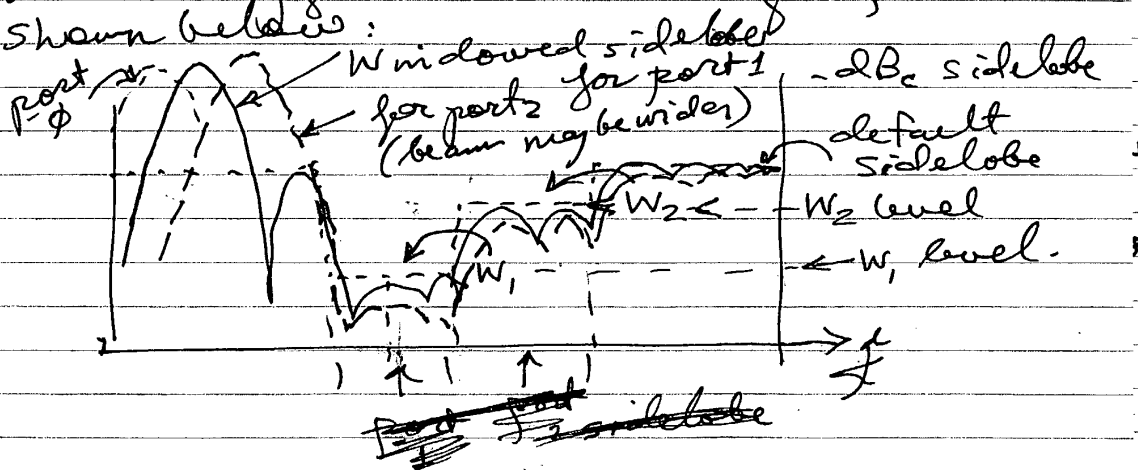 shown below:
Windowed sidelobe
for port 1
port
φ
for port 2
(beam may be wider)
-dBc sidelobe
default
sidelobe
W2 <- - W2 level
W1
<- W1 level.
f
sidelobe